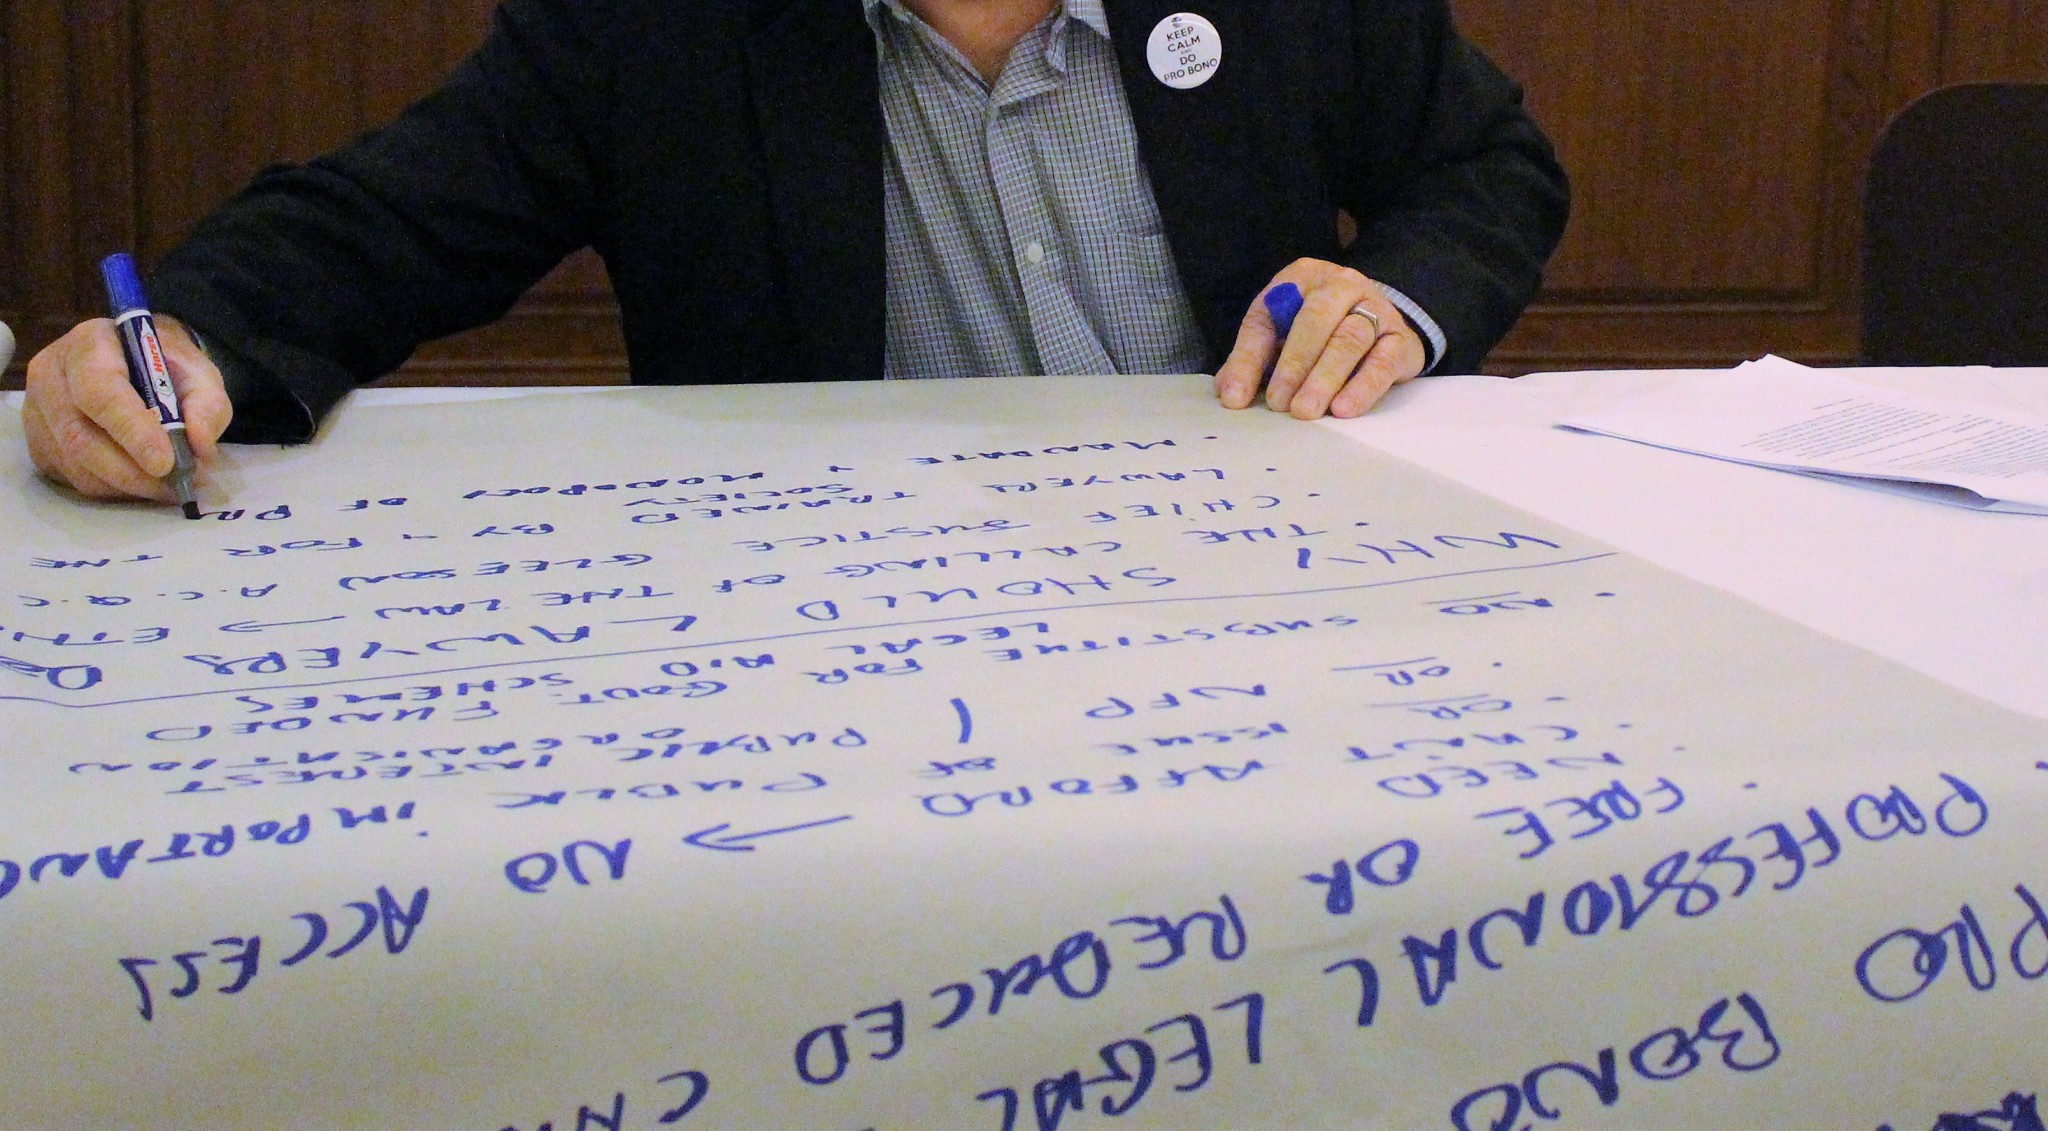 KEEP
CALM
AND
DO
PRO BONO
Horse
PRO BONO
PROFESSIONAL LEGAL
• FREE OR REDUCED
• NEED
• CAN'T AFFORD → NO ACCESS
• OR ISSUE OF PUBLIC IMPORTANC
• OR NFP / PUBLIC INTEREST
ORGANISATION
• NO SUBSTITUE FOR GOVT. FUNDED
LEGAL AID SCHEMES
WHY SHOULD LAWYERS
• THE CALLING OF THE LAW → ETH
• CHIEF JUSTICE GLEESON A.C. Q.C
• LAWYERS TRAINED BY & FOR THE
SOCIETY
• MANDATE & MONOPOLY OF PR